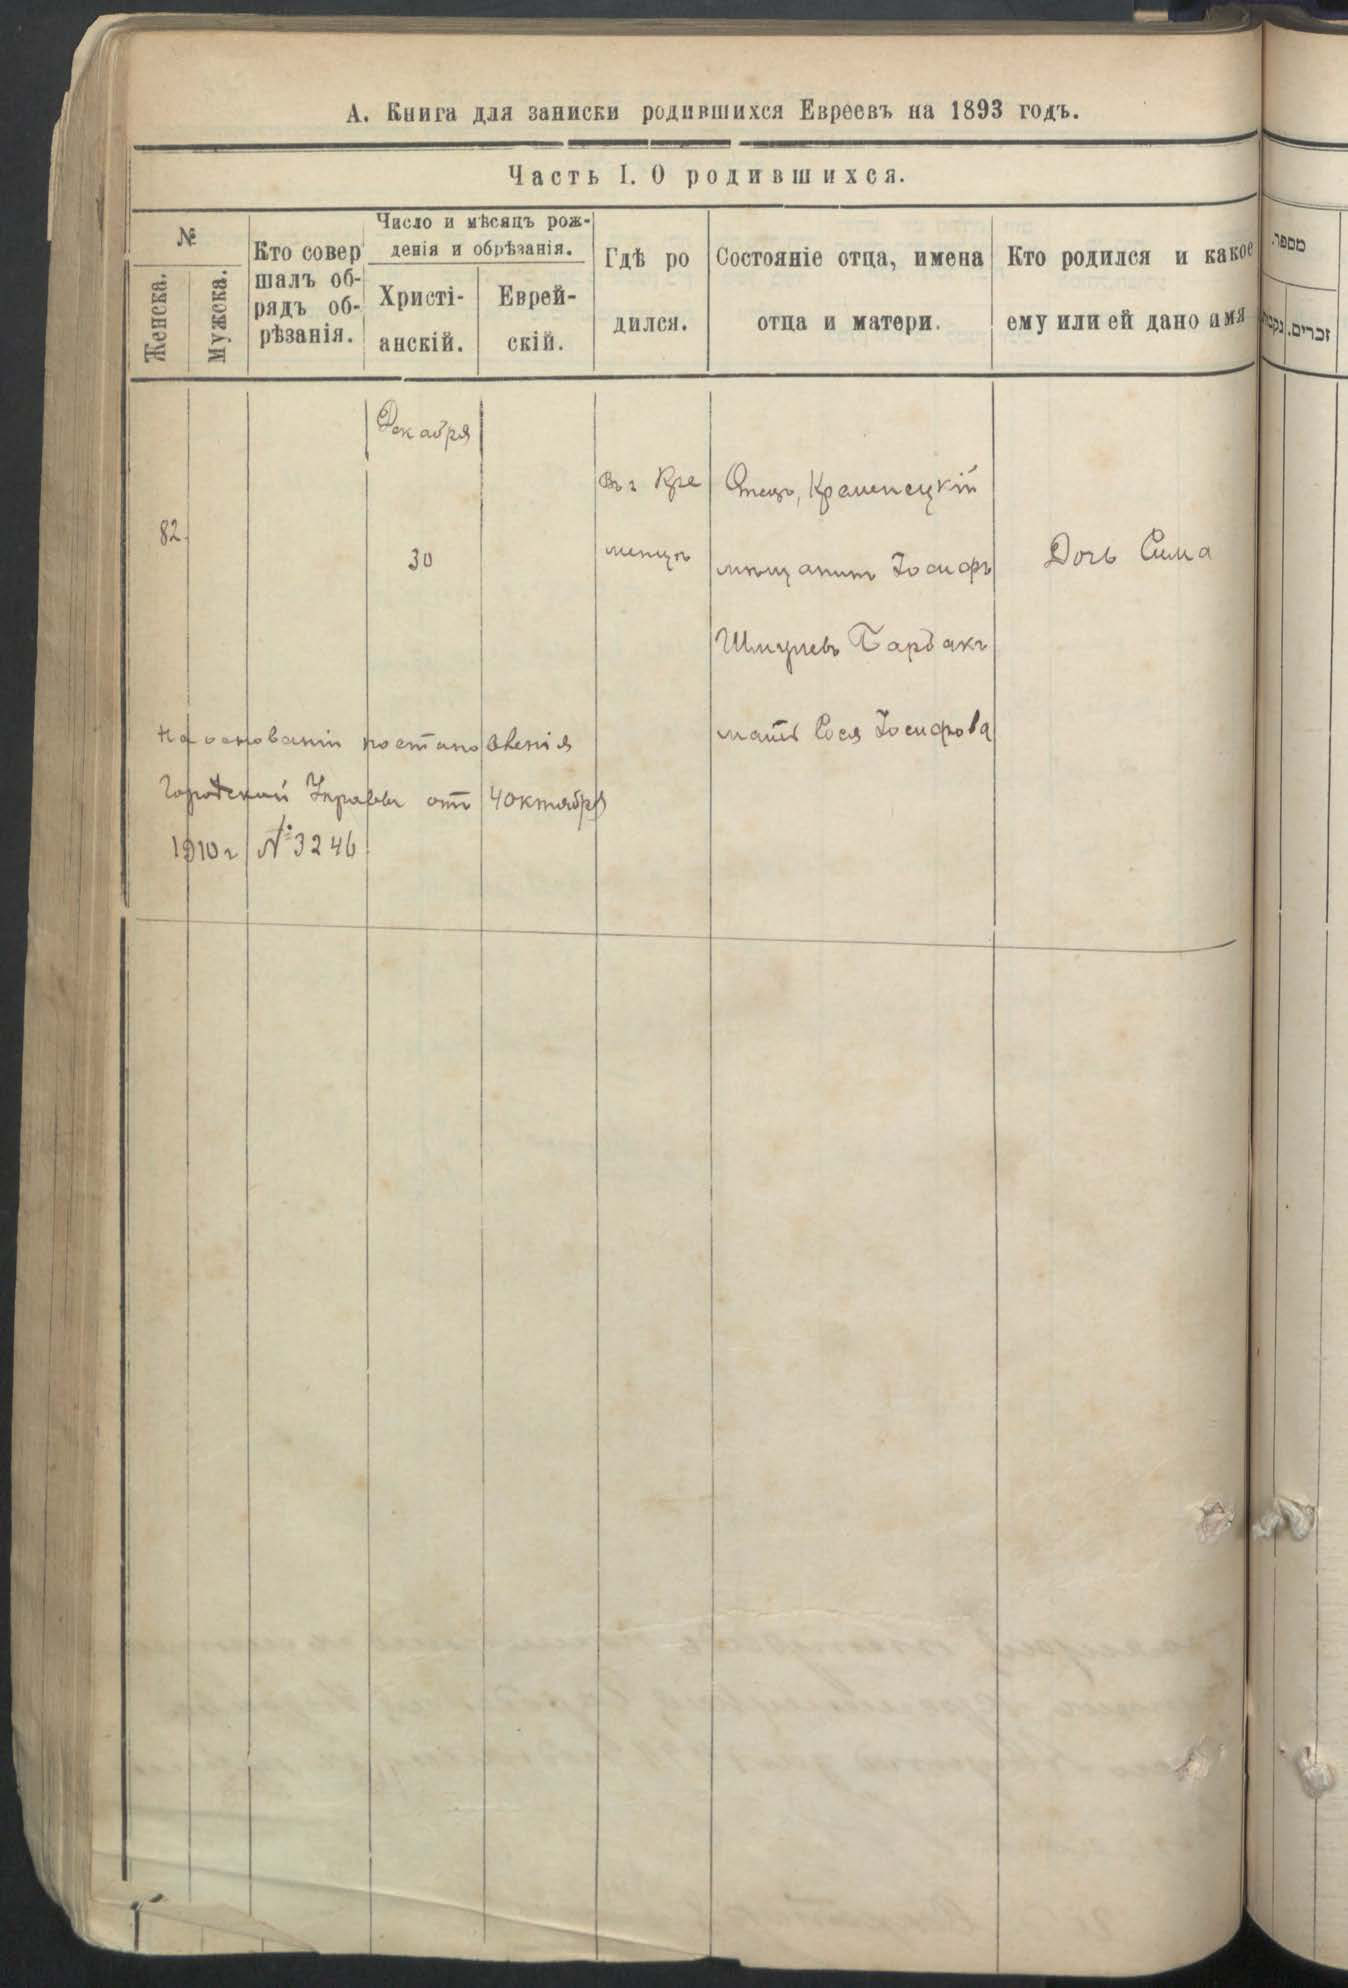 А. Книга для записки родившихся Евреевъ на 1893 годъ.
Часть I. О родившихся.
№
Женска.
Мужска.
Кто совер
шалъ об-
рядъ об-
рѣзанія.
Число и мѣсяцъ рож-
денія и обрѣзанія.
Христі-
анскій.
Еврей-
скій.
Гдѣ ро
дился.
Состояніе отца, имена
отца и матери.
Кто родился и какое
ему или ей дано имя
מספר.
זכרים.
Декабря
82.
30
Въ г Кре
менцѣ
Отецъ, Кременецкій
мѣщанинъ Іосифъ
Шмулевъ Барбакъ
мать Сося Іосифова
Дочь Сима
На основаніи постановленія
Городской Управы отъ 4 октября
1910 г № 3246